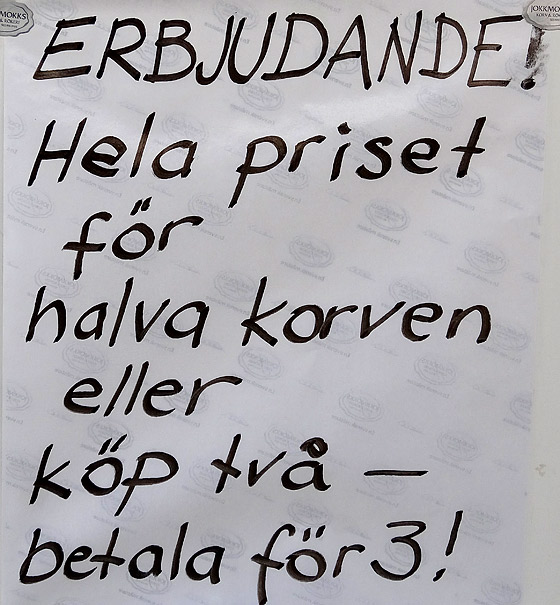 ERBJUDANDE!
Hela priset
för
halva korven
eller
köp två —
betala för 3!